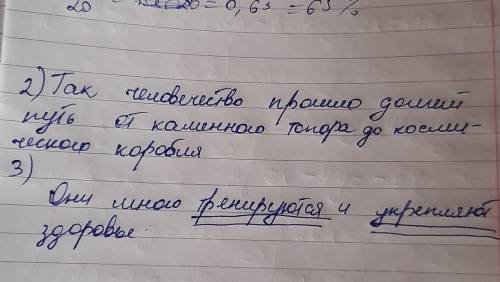 20 = 0,65 = 65%
2) Так человечество прошло долгий
путь от каменного топора до косми-
ческого корабля
3)
Они много тренируются и укрепляют
здоровье.